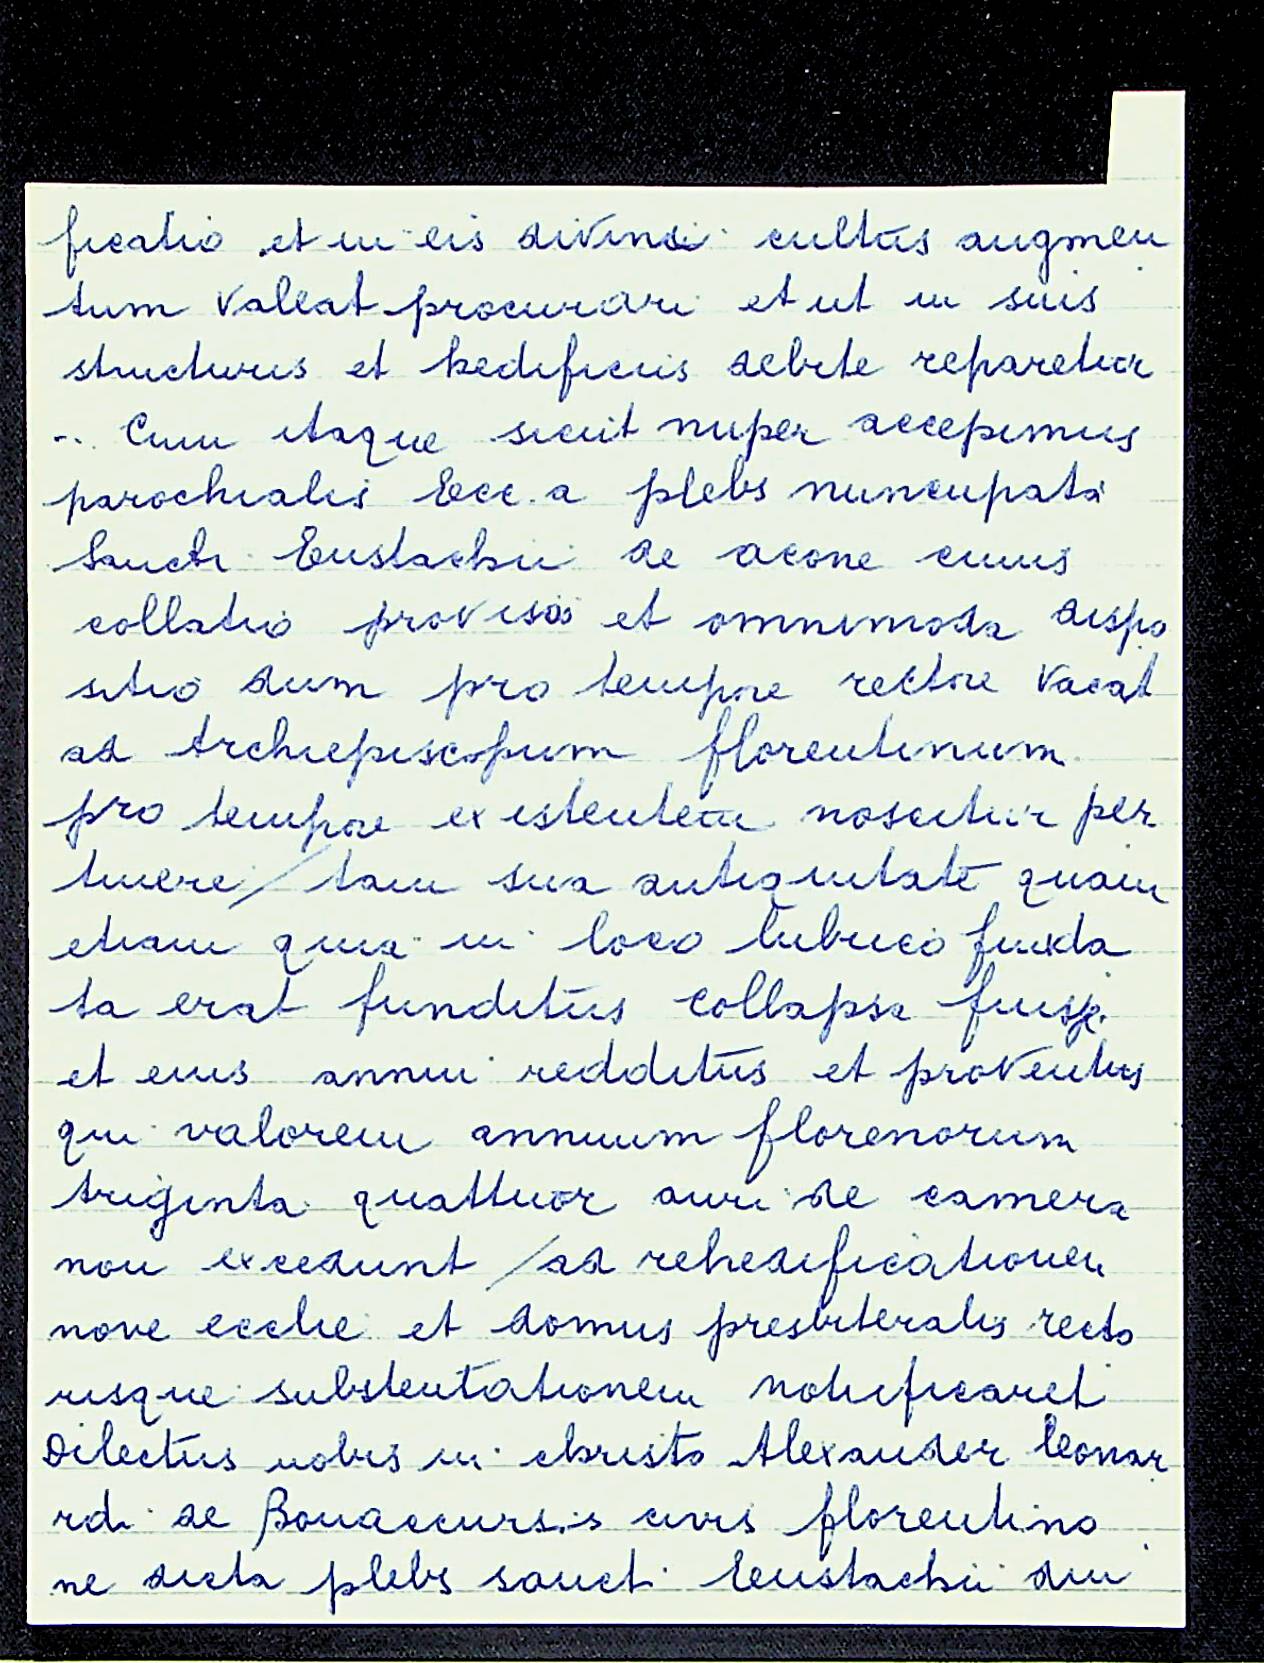 ficatio et in eis divini cultus augmen
tum valeat procurari et ut in suis
structuris et hedificiis debite reparetur
.. Cum itaque sicut nuper accepimus
parochialis Ecc.a plebs nuncupata
Sancti Eustachii de acone cuius
collatio provisio et omnimoda dispo
sitio dum pro tempore rectore vacat
ad Archiepiscopum florentinum
pro tempore existentem noscitur per
tinere / tam sua antiquitate quam
etiam quia in loco lubrico funda
ta erat funditus collapsa fuisse
et eius annui redditus et proventus
qui valorem annuum florenorum
triginta quattuor auri de camera
non excedunt / ad rehedificationem
nove ecclie et domus presbiteralis recto
risque substentationem notificaret
Dilectus nobis in christo Alexander leonar
rdi de Bonaccursis civis florentino
ne dicta plebs sancti Eustachii diu